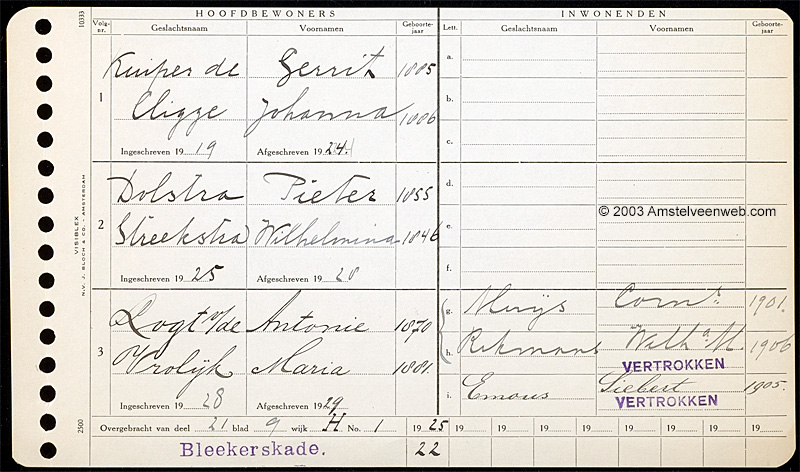 HOOFDBEWONERS
INWONENDEN
10333
Volg-nr. Geslachtsnaam Voornamen Geboorte-jaar
Lett. Geslachtsnaam Voornamen Geboorte-jaar
1
Kuiper de Gerrit 1885
Johanna 1886
Ingeschreven 19 19 Afgeschreven 19 24.
2
Dolstra Pieter 1855
Streekstra Wilhelmina 1846
Ingeschreven 19 25 Afgeschreven 19 28
3
Logt v/de Antonie 1870
Vrolijk Maria 1881.
Ingeschreven 19 28 Afgeschreven 19 29
a.
b.
c.
d.
© 2003 Amstelveenweb.com
e.
f.
g. Muijs Corns. 1901.
h. Rekmans Wilh a M. 1906
VERTROKKEN
i. Emous Siebert 1905.
VERTROKKEN
VISIBLEX
N.V. J. BLOCH & CO. - AMSTERDAM
2500
Overgebracht van deel 21 blad 9 wijk H No. 1 19 25 19 19 19 19 19 19 19 19
Bleekerskade. 22